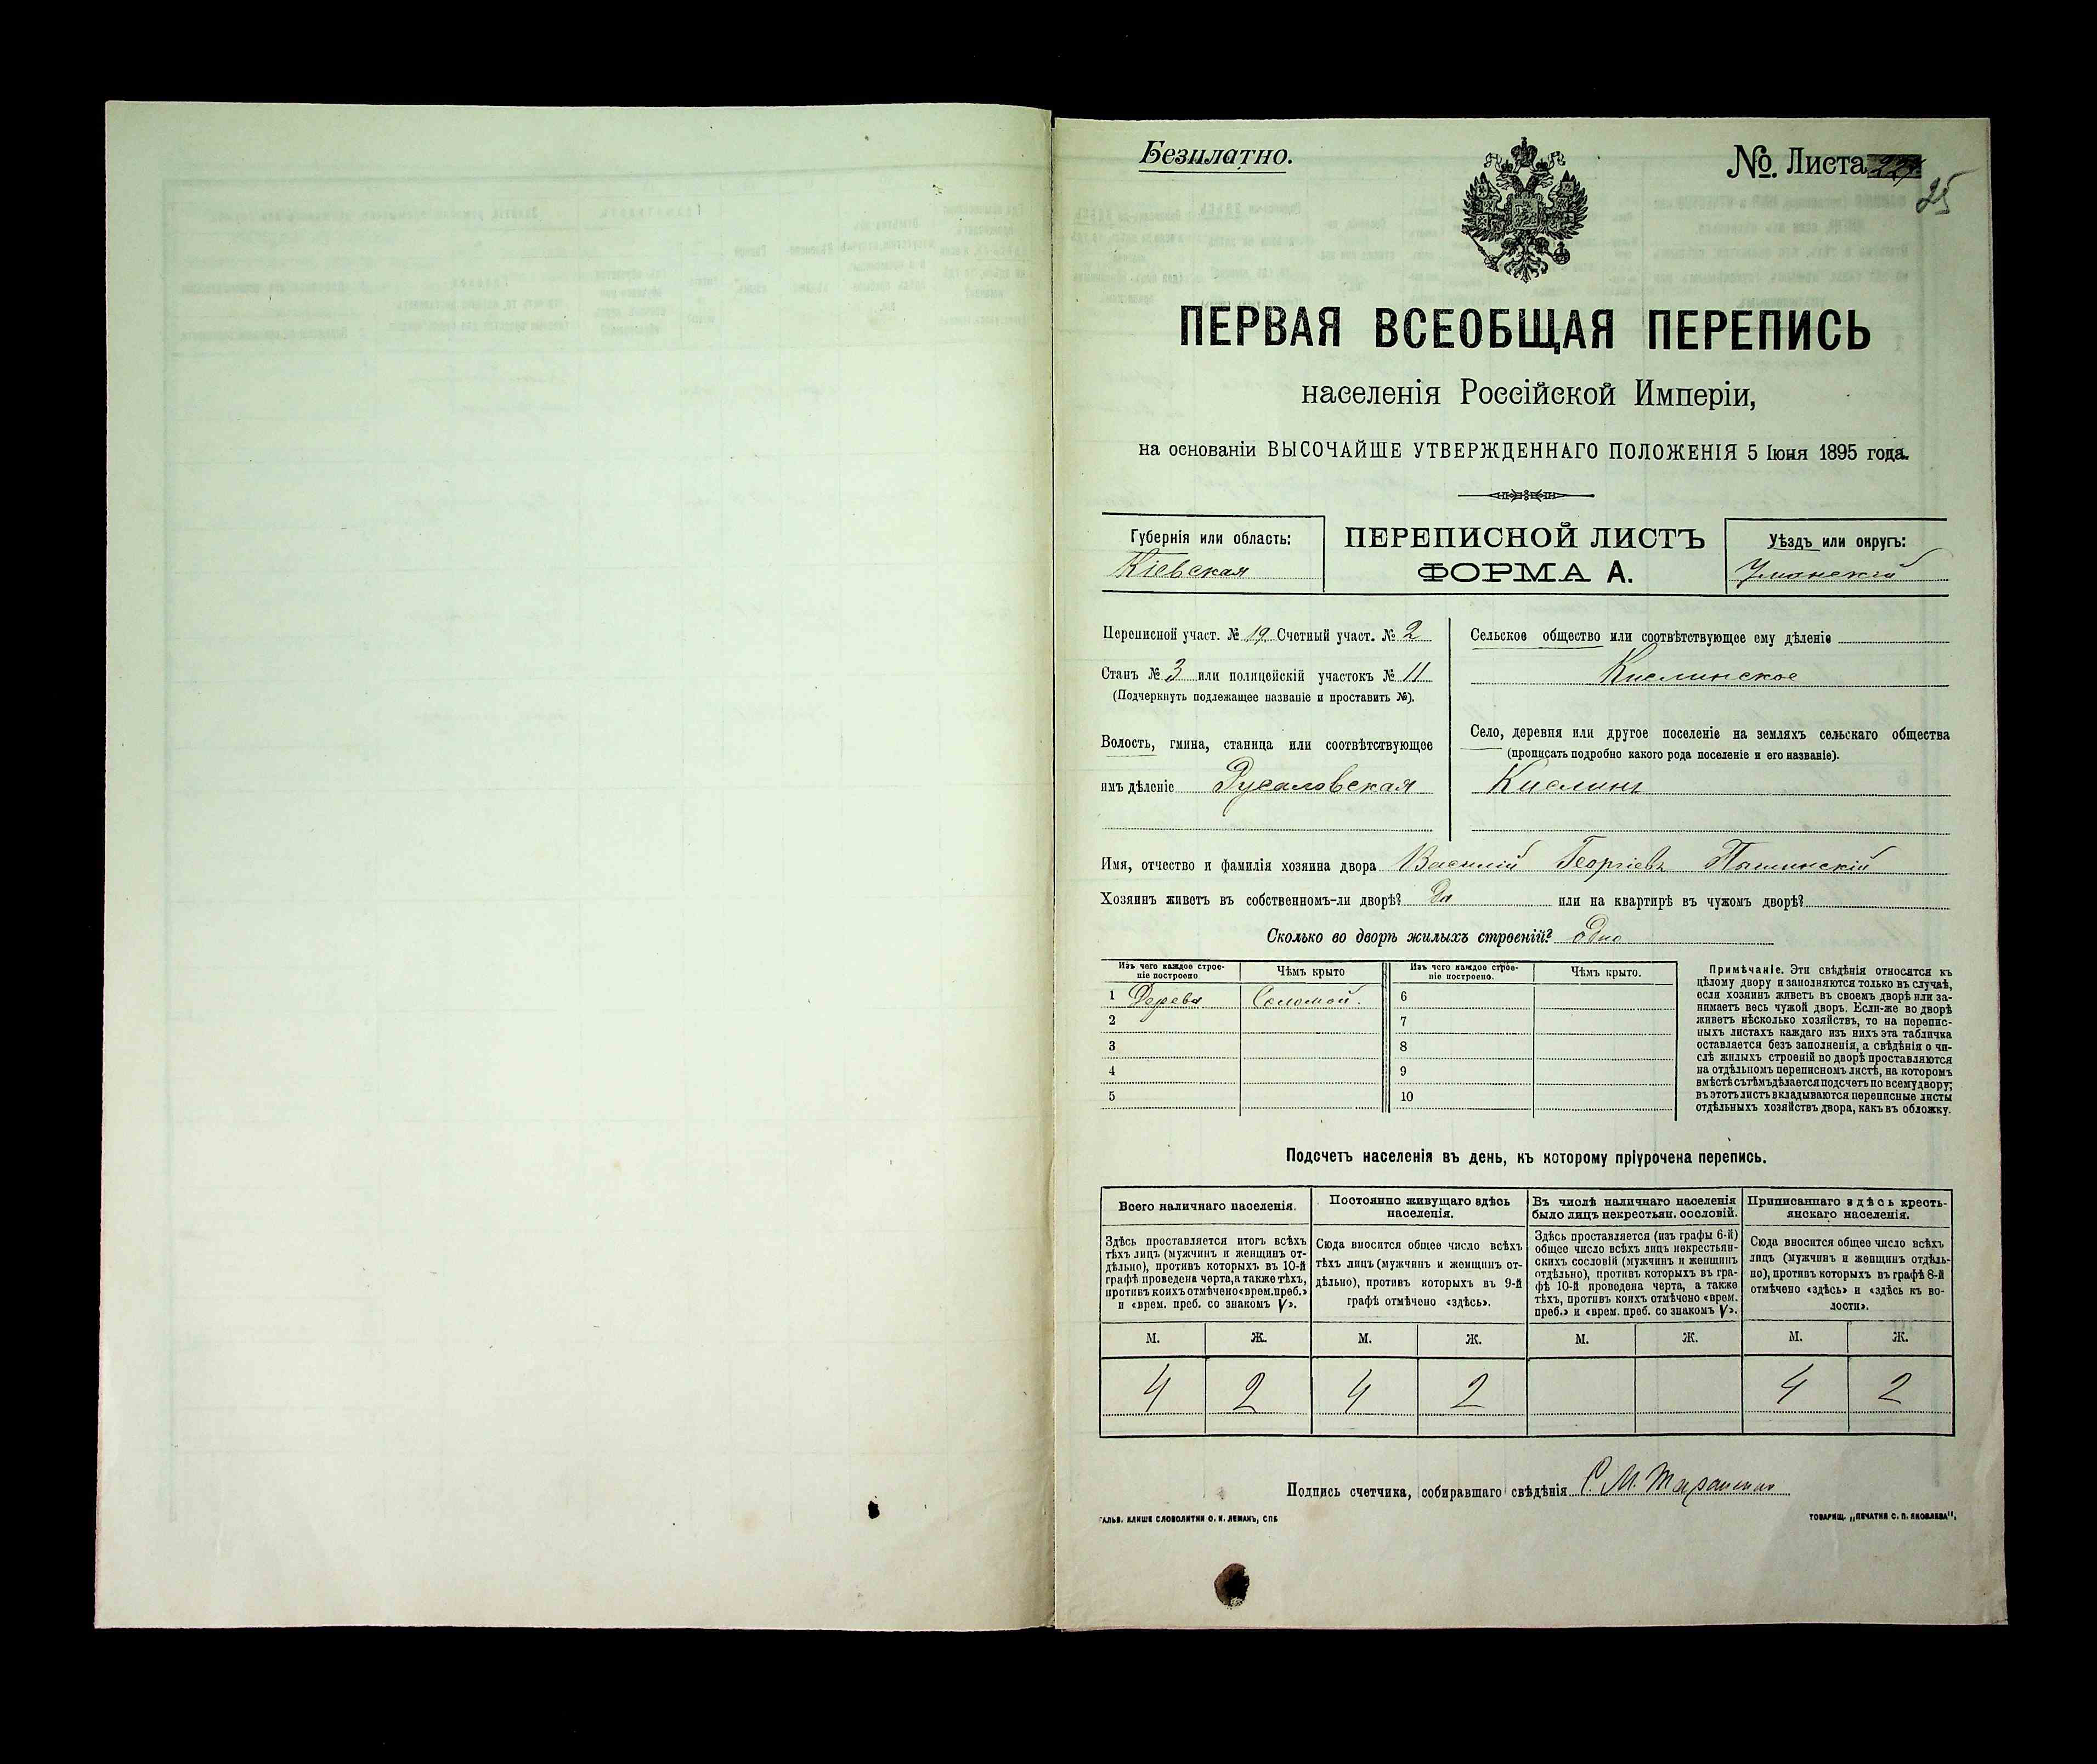 Безплатно.
№. Листа
25
ПЕРВАЯ ВСЕОБЩАЯ ПЕРЕПИСЬ
населенія Россійской Имперіи,
на основаніи ВЫСОЧАЙШЕ УТВЕРЖДЕННАГО ПОЛОЖЕНІЯ 5 Іюня 1895 года.
Губернія или область:
Кіевская
ПЕРЕПИСНОЙ ЛИСТЪ
ФОРМА А.
Уѣздъ или округъ:
Уманскій
Переписной участ. № 19 Счетный участ. № 2
Станъ № 3 или полицейскій участокъ № 11
(Подчеркнуть подлежащее названіе и проставить №).
Волость, гмина, станица или соотвѣтствующее
имъ дѣленіе Русаловская
Сельское общество или соотвѣтствующее ему дѣленіе
Кислинское
Село, деревня или другое поселеніе на земляхъ сельскаго общества
(прописать подробно какого рода поселеніе и его названіе).
Кислинъ
Имя, отчество и фамилія хозяина двора Василій Георгіевъ
Хозяинъ живетъ въ собственномъ-ли дворѣ? Да или на квартирѣ въ чужомъ дворѣ?
Сколько во дворѣ жилыхъ строеній? одно
Изъ чего каждое строе-
ніе построено
Чѣмъ крыто
Изъ чего каждое строе-
ніе построено.
Чѣмъ крыто.
1 Дерева Соломой. 6
2 7
3 8
4 9
5 10
Примѣчаніе. Эти свѣдѣнія относятся къ
цѣлому двору и заполняются только въ случаѣ,
если хозяинъ живетъ въ своемъ дворѣ или за-
нимаетъ весь чужой дворъ. Если-же во дворѣ
живетъ нѣсколько хозяйствъ, то на перепис-
ныхъ листахъ каждаго изъ нихъ эта табличка
оставляется безъ заполненія, а свѣдѣнія о чи-
слѣ жилыхъ строеній во дворѣ проставляются
на отдѣльномъ переписномъ листѣ, на которомъ
вмѣстѣ съ тѣмъ дѣлается подсчетъ по всему двору;
въ этотъ листъ вкладываются переписные листы
отдѣльныхъ хозяйствъ двора, какъ въ обложку.
Подсчетъ населенія въ день, къ которому пріурочена перепись.
Всего наличнаго населенія.
Здѣсь проставляется итогъ всѣхъ
тѣхъ лицъ (мужчинъ и женщинъ от-
дѣльно), противъ которыхъ въ 10-й
графѣ проведена черта, а также тѣхъ,
противъ коихъ отмѣчено «врем. преб.»
и «врем. преб. со знакомъ V».
Постоянно живущаго здѣсь
населенія.
Сюда вносится общее число всѣхъ
тѣхъ лицъ (мужчинъ и женщинъ от-
дѣльно), противъ которыхъ въ 9-й
графѣ отмѣчено «здѣсь».
Въ числѣ наличнаго населенія
было лицъ некрестьян. сословій.
Здѣсь проставляется (изъ графы 6-й)
общее число всѣхъ лицъ некрестьян-
скихъ сословій (мужчинъ и женщинъ
отдѣльно), противъ которыхъ въ гра-
фѣ 10-й проведена черта, а также
тѣхъ, противъ коихъ отмѣчено «врем.
преб.» и «врем. преб. со знакомъ V».
Приписаннаго здѣсь кресть-
янскаго населенія.
Сюда вносится общее число всѣхъ
лицъ (мужчинъ и женщинъ отдѣль-
но), противъ которыхъ въ графѣ 8-й
отмѣчено «здѣсь» и «здѣсь къ во-
лости».
М. Ж. М. Ж. М. Ж. М. Ж.
4 2 4 2 4 2
Подпись счетчика, собиравшаго свѣдѣнія С. М.
ГАЛЬВ. КЛИШЕ СЛОВОЛИТНИ О. И. ЛЕМАНЪ, СПБ
ТОВАРИЩ. „ПЕЧАТНЯ С. П. ЯКОВЛЕВА",